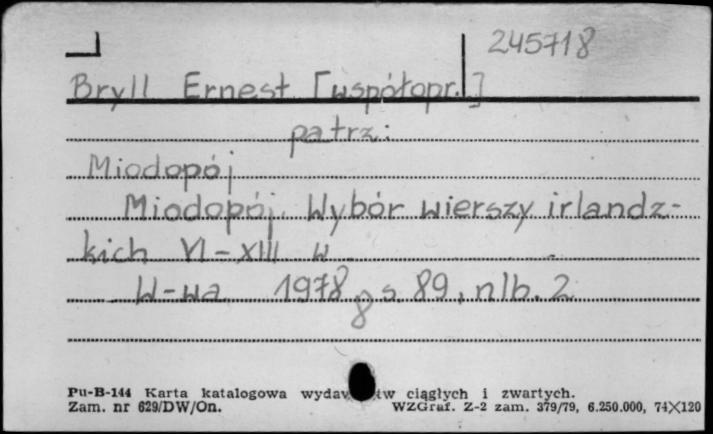 245718
Bryll Ernest [współopr.]
patrz:
Miodopój
Miodopój. Wybór wierszy irlandz-
kich VI-XIII w.
W-wa 1978 s. 89, nlb. 2
8
Pu-B-144 Karta katalogowa ciągłych i zwartych.
Zam. nr 629/DW/On. WZGraf. Z-2 zam. 379/79, 6.250.000, 74X120